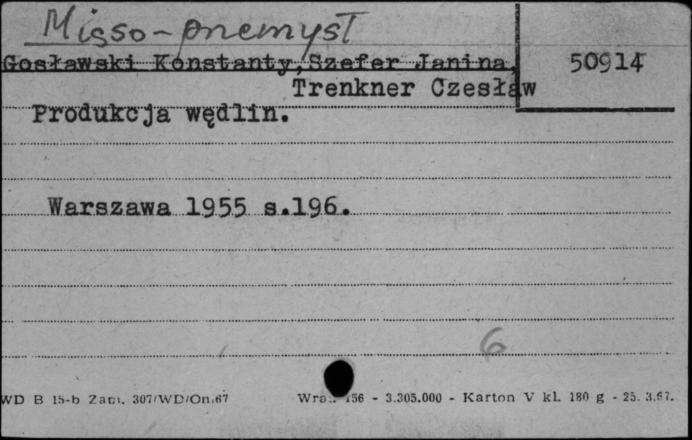 Mięso-przemysł
Gosławski Konstanty, Szefer Janina, 50914
Trenkner Czesław
Produkcja wędlin.
Warszawa 1955 s.196.
6
WD B 15-b Zam. 307/WD/On/67 156 - 3.305.000 - Karton V kl. 180 g - 25. 3.67.